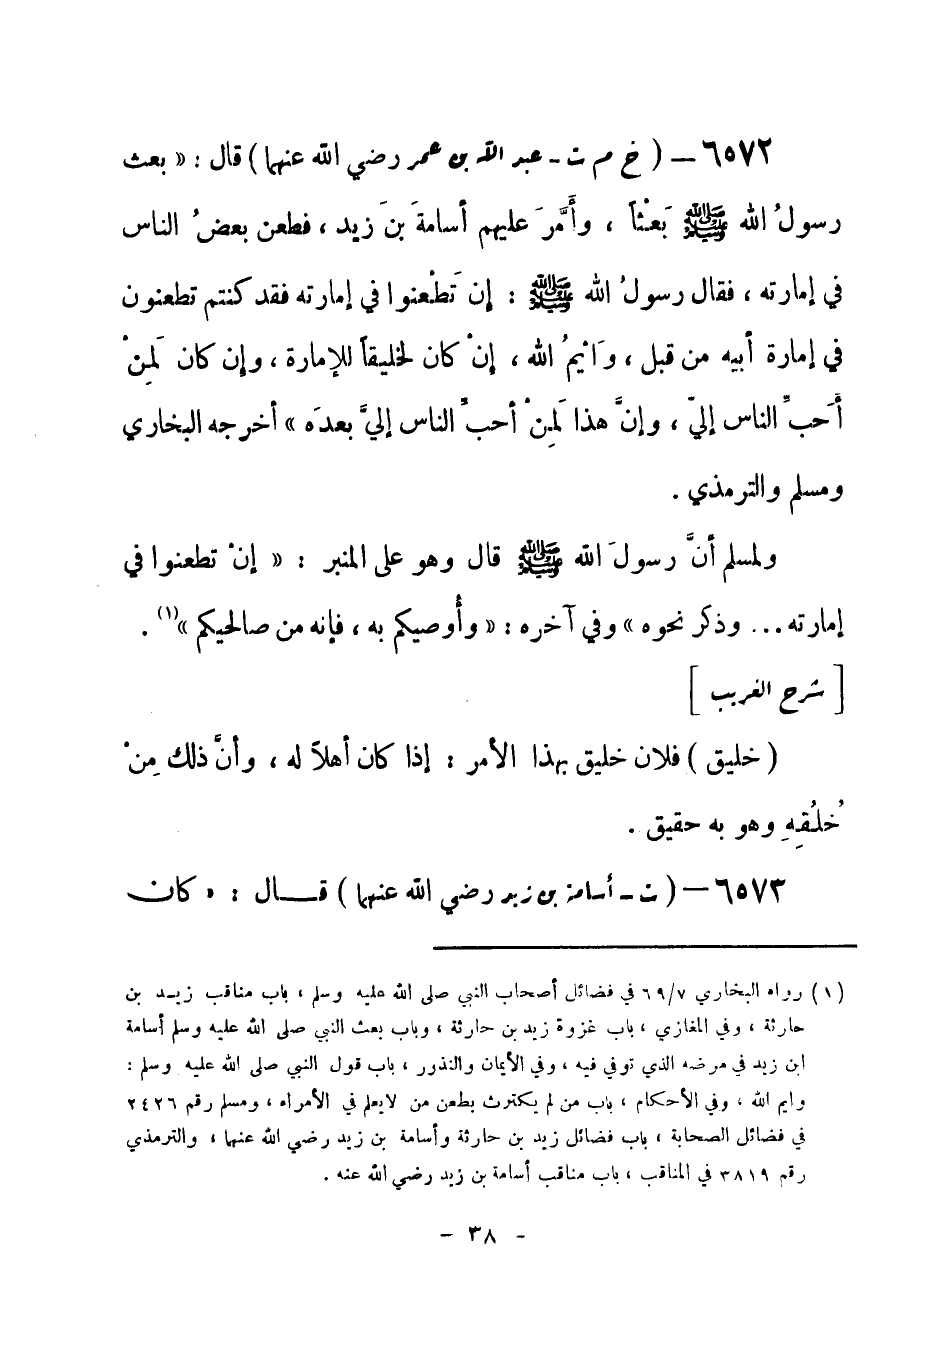 ٦٥٧٢ – ( خ م ت - عبد الله بن عمر رضي الله عنهما ) قال : « بعث
رسولُ الله ﷺ بَعْثاً ، وأَمَّرَ عليهم أسامةَ بنَ زيد ، فطعن بعضُ الناس
في إمارته ، فقال رسولُ الله ﷺ : إن تَطْعنوا في إمارته فقد كنتم تطعنون
في إمارة أبيه من قبل ، وَايْمُ الله ، إنْ كان لخليقاً للإمارة ، وإن كان لَمِنْ
أَحَبِّ الناس إليّ ، وإنَّ هذا لَمِنْ أحبِّ الناس إليَّ بعدَه » أخرجه البخاري
ومسلم والترمذي .
ولمسلم أنَّ رسولَ الله ﷺ قال وهو على المنبر : « إنْ تطعنوا في
إمارته ... وذكر نحوه » وفي آخره : « وأُوصيكم به ، فإنه من صالحيكم »(١) .
[ شرح الغريب ]
( خليق ) فلان خليق بهذا الأمر : إذا كان أهلاً له ، وأنَّ ذلك مِنْ
خُلُقِهِ وهو به حقيق .
٦٥٧٣ – ( ت - أسامة بن زيد رضي الله عنهما ) قــال : « كان
(١) رواه البخاري ٦٩/٧ في فضائل أصحاب النبي صلى الله عليه وسلم ، باب مناقب زيــد بن
حارثة ، وفي المغازي ، باب غزوة زيد بن حارثة ، وباب بعث النبي صلى الله عليه وسلم أسامة
ابن زيد في مرضه الذي توفي فيه ، وفي الأيمان والنذور ، باب قول النبي صلى الله عليه وسلم :
وايم الله ، وفي الأحكام ، باب من لم يكترث بطعن من لا يعلم في الأمراء ، ومسلم رقم ٢٤٢٦
في فضائل الصحابة ، باب فضائل زيد بن حارثة وأسامة بن زيد رضي الله عنهما ، والترمذي
رقم ٣٨١٩ في المناقب ، باب مناقب أسامة بن زيد رضي الله عنه .
- ٣٨ -